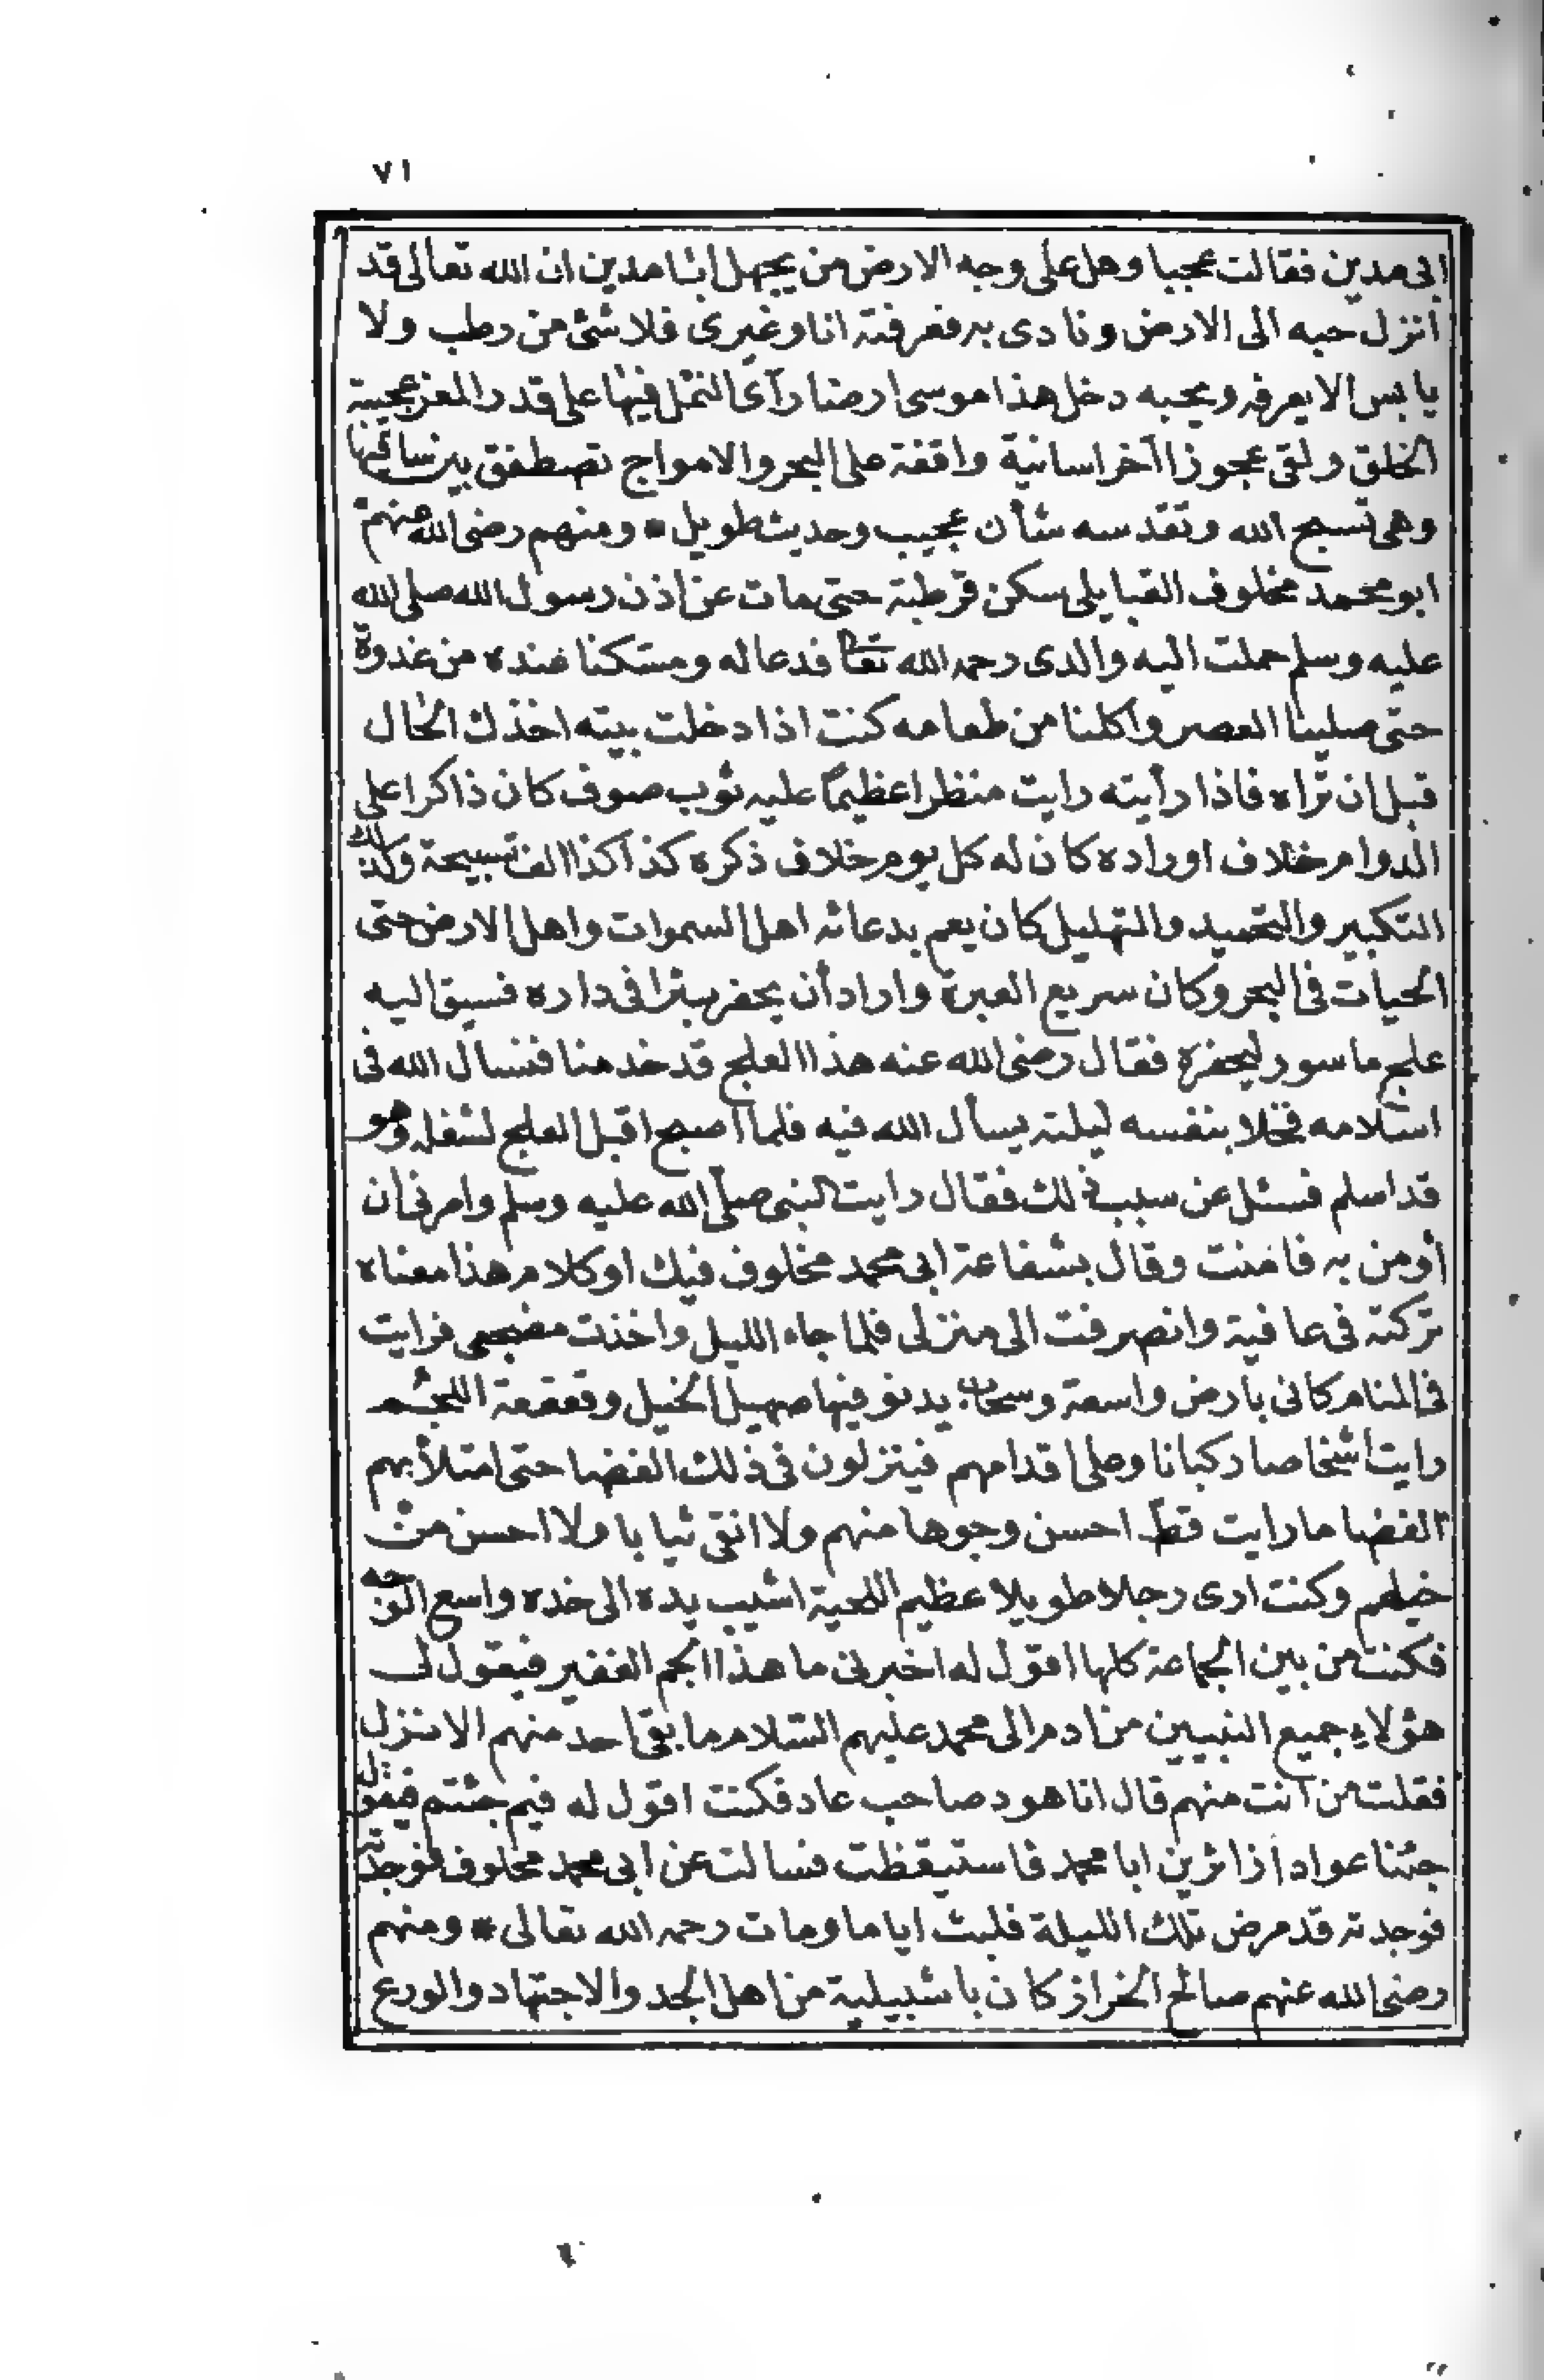 ٧١
ابى مدين فقالت عجبا وهل على وجه الارض من يجهل ابا مدين ان الله تعالى قد
انزل حبه الى الارض ونادى به فعرفته انا وغيرى فلا شئ من رطب ولا
يابس الا يعرفه ويحبه دخل هذا موسى ارضا رآى النمل فيها على قدر المعز عجيبة
الخلق ولقى عجوزا آخراسانية واقفة على البحر والامواج تصطفق بين ساقيها
وهى تسبح الله وتقدسه شأن عجيب وحديث طويل * ومنهم رضى الله عنهم
ابو محمد مخلوف القبايلى سكن قرطبة حتى مات عن اذن رسول الله صلى الله
عليه وسلم حملت اليه والدى رحمه الله تعا فدعا له ومسكنا عنده من غدوة
حتى صلينا العصر واكلنا من طعامه كنت اذا دخلت بيته اخذك الحال
قبل ان تراه فاذا رأيته رايت منظرا عظيما عليه ثوب صوف كان ذاكرا على
الدوام خلاف اوراده كان له كل يوم خلاف ذكره كذا كذا الف تسبيحة وكذلك
التكبير والتحميد والتهليل كان يعم بدعائه اهل السموات واهل الارض حتى
الحيات فى البحر وكان سريع العبرة واراد أن يحفر بئرا فى داره فسيق اليه
علج ماسور ليحفره فقال رضى الله عنه هذا العلج قد خدمنا فنسال الله فى
اسلامه فخلا بنفسه ليلته يسأل الله فيه فلما اصبح اقبل العلج لشغله وهو
قد اسلم فسئل عن سبب ذلك فقال رايت النبى صلى الله عليه وسلم وامرنى ان
أومن به فامنت وقال بشفاعة ابى محمد مخلوف فيك اوكلام هذا معناه
تركته فى عافية وانصرفت الى منزلى فلما جاء الليل واخذت مضجعى فرايت
فى المنام كانى بارض واسعة وسحاب يدنو فيها صهيل الخيل وقعقعة اللجم
رايت أشخاصا ركبانا وعلى اقدامهم فينزلون فى ذلك الفضا حتى امتلأ بهم
الفضا ما رايت قط احسن وجوها منهم ولا انقى ثيابا ولا احسن من
خيلهم وكنت ارى رجلا طويلا عظيم اللحية اشيب يده الى خده واسع الوجه
فكنت من بين الجماعة كلها اقول له اخبرنى ما هذا الجم الغفير فيقول لى
هؤلاء جميع النبيين من ادم الى محمد عليهم السلام ما بقى احد منهم الا نزل
فقلت من انت منهم قال انا هود صاحب عاد فكنت اقول له فيم جئتم فيقول
جئنا عوادا زائرين ابا محمد فاستيقظت فسالت عن ابى محمد مخلوف فوجدته
فوجدته قد مرض تلك الليلة فلبث اياما ومات رحمه الله تعالى * ومنهم
رضى الله عنهم صالح الخراز كان باشبيلية من اهل الجد والاجتهاد والورع